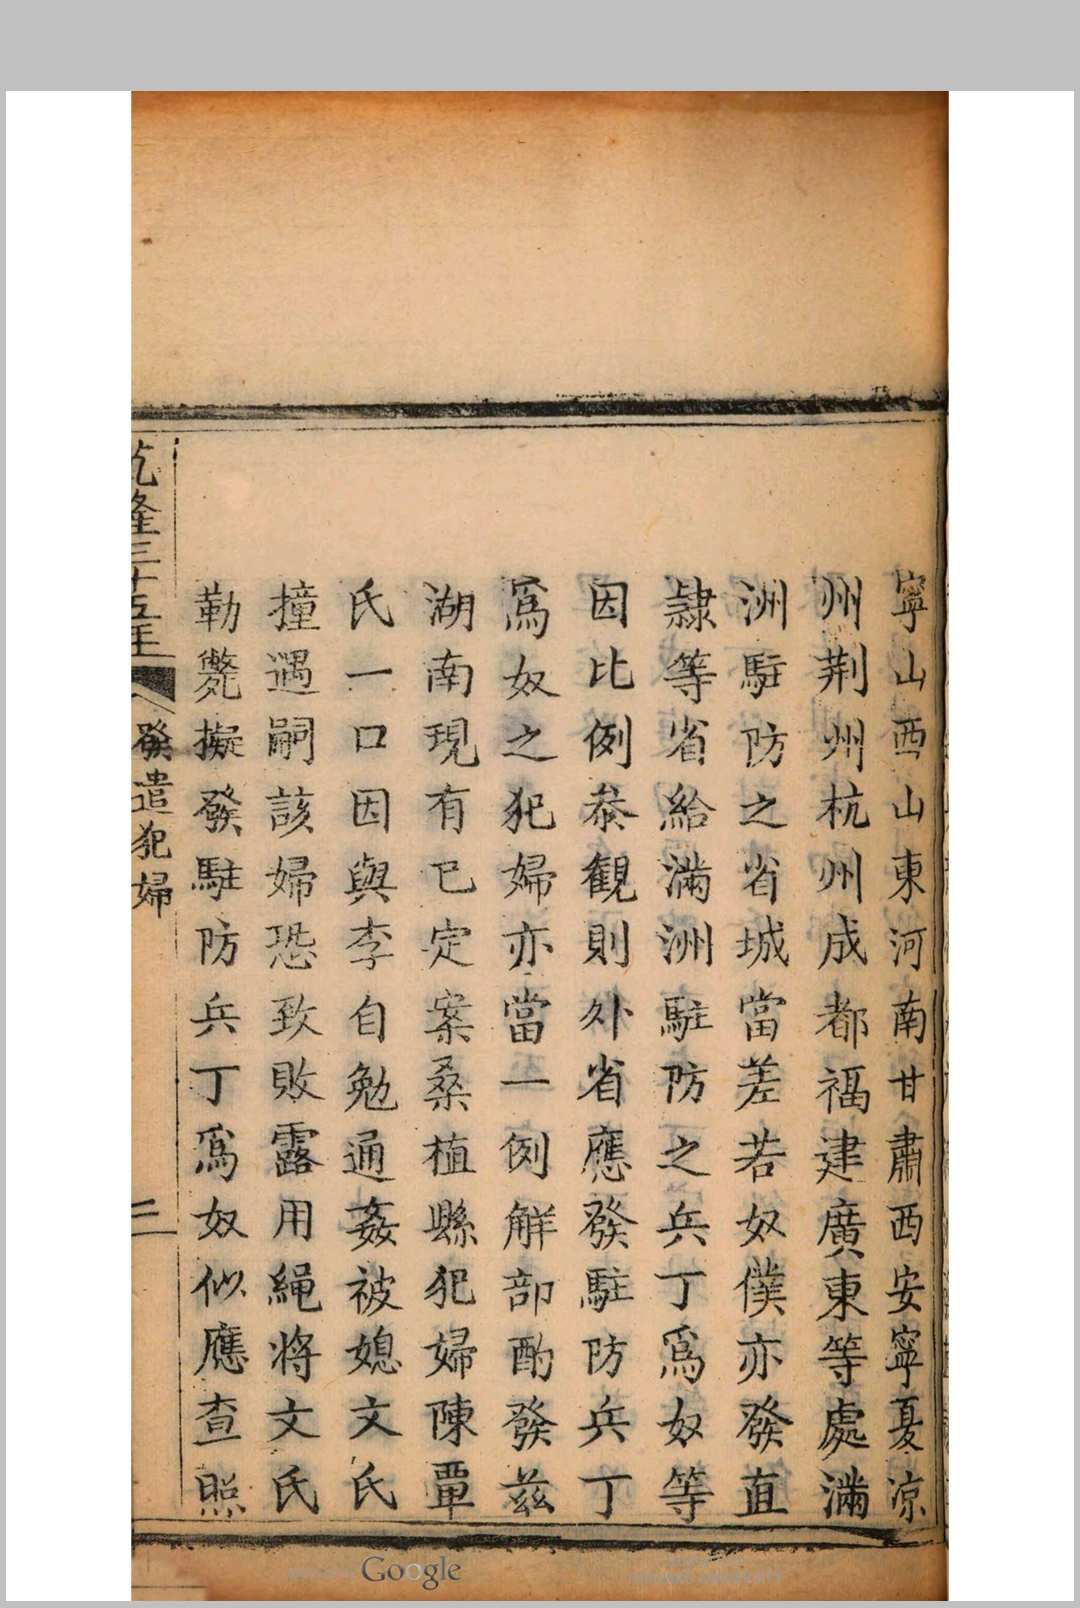 寧山西山東河南甘肅西安寧夏凉
州荆州杭州成都福建廣東等處滿
洲駐防之省城當差若奴僕亦發直
隷等省給滿洲駐防之兵丁爲奴等
因比例叅觀則外省應發駐防兵丁
爲奴之犯婦亦當一例解部酌發兹
湖南現有已定案桑植縣犯婦陳覃
氏一口因與李自勉通姦被媳文氏
撞遇嗣該婦恐致敗露用繩將文氏
勒斃擬發駐防兵丁爲奴似應查照
乾隆三十五年 發遣犯婦 三
Google